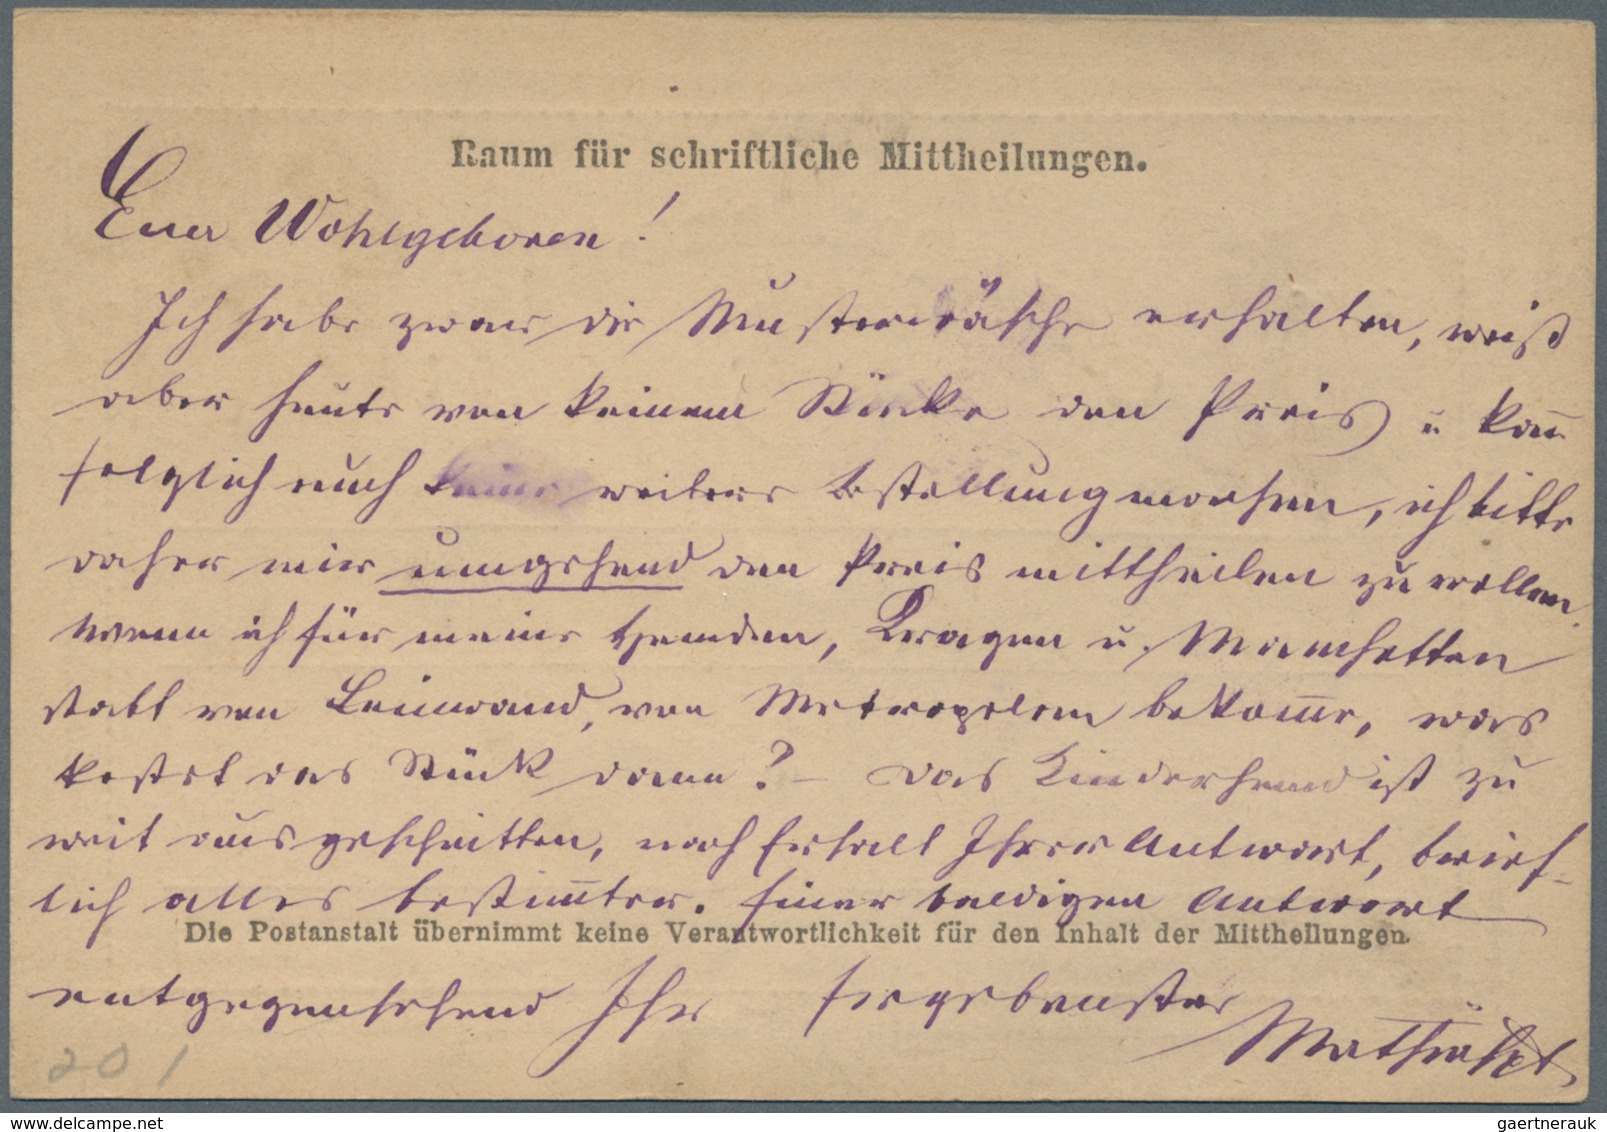 Raum für schriftliche Mittheilungen.
Euer Wohlgeboren!
Ich habe zwar die Musterwäsche erhalten, weiß
aber heute von keinem Stücke den Preis u kañ
folglich auch keine weitere Bestellung machen, ich bitte
daher mir umgehend den Preis mittheilen zu wollen.
Wenn ich für meine Hemden, Kragen u. Manchetten
statt von Leinwand, von Metropolem bekom̄e, was
kostet das Stück dann? – Das Kinderhemd ist zu
weit ausgeschnitten, nach Erhalt Ihrer Antwort, brief-
lich alles bestim̄ter. Einer baldigen Antwort
Die Postanstalt übernimmt keine Verantwortlichkeit für den Inhalt der Mittheilungen.
entgegensehend Ihr Ergebenster
201
gaertnerauk